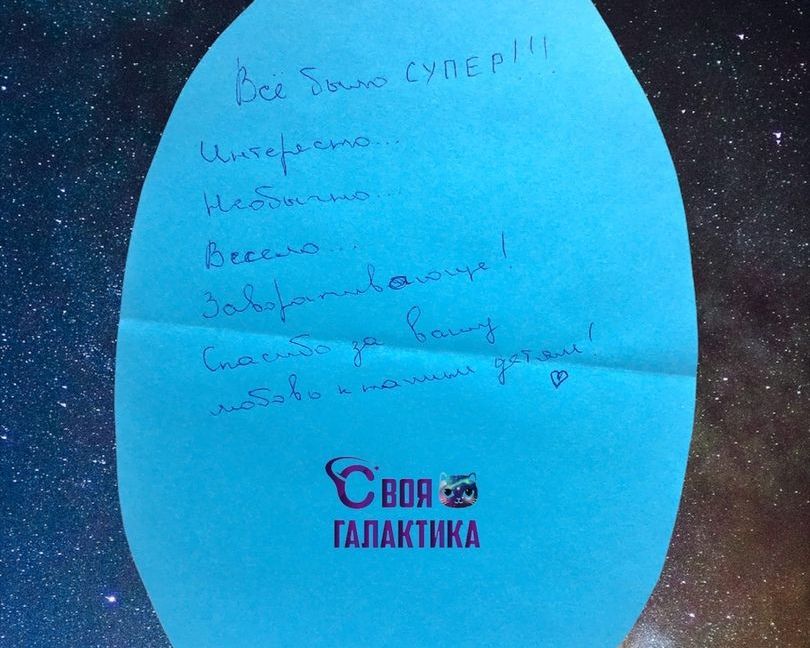 Всё было СУПЕР!!!
Интересно...
Необычно...
Весело...
Завораживающе!
Спасибо за вашу
любовь к нашим детям!
Своя
ГАЛАКТИКА